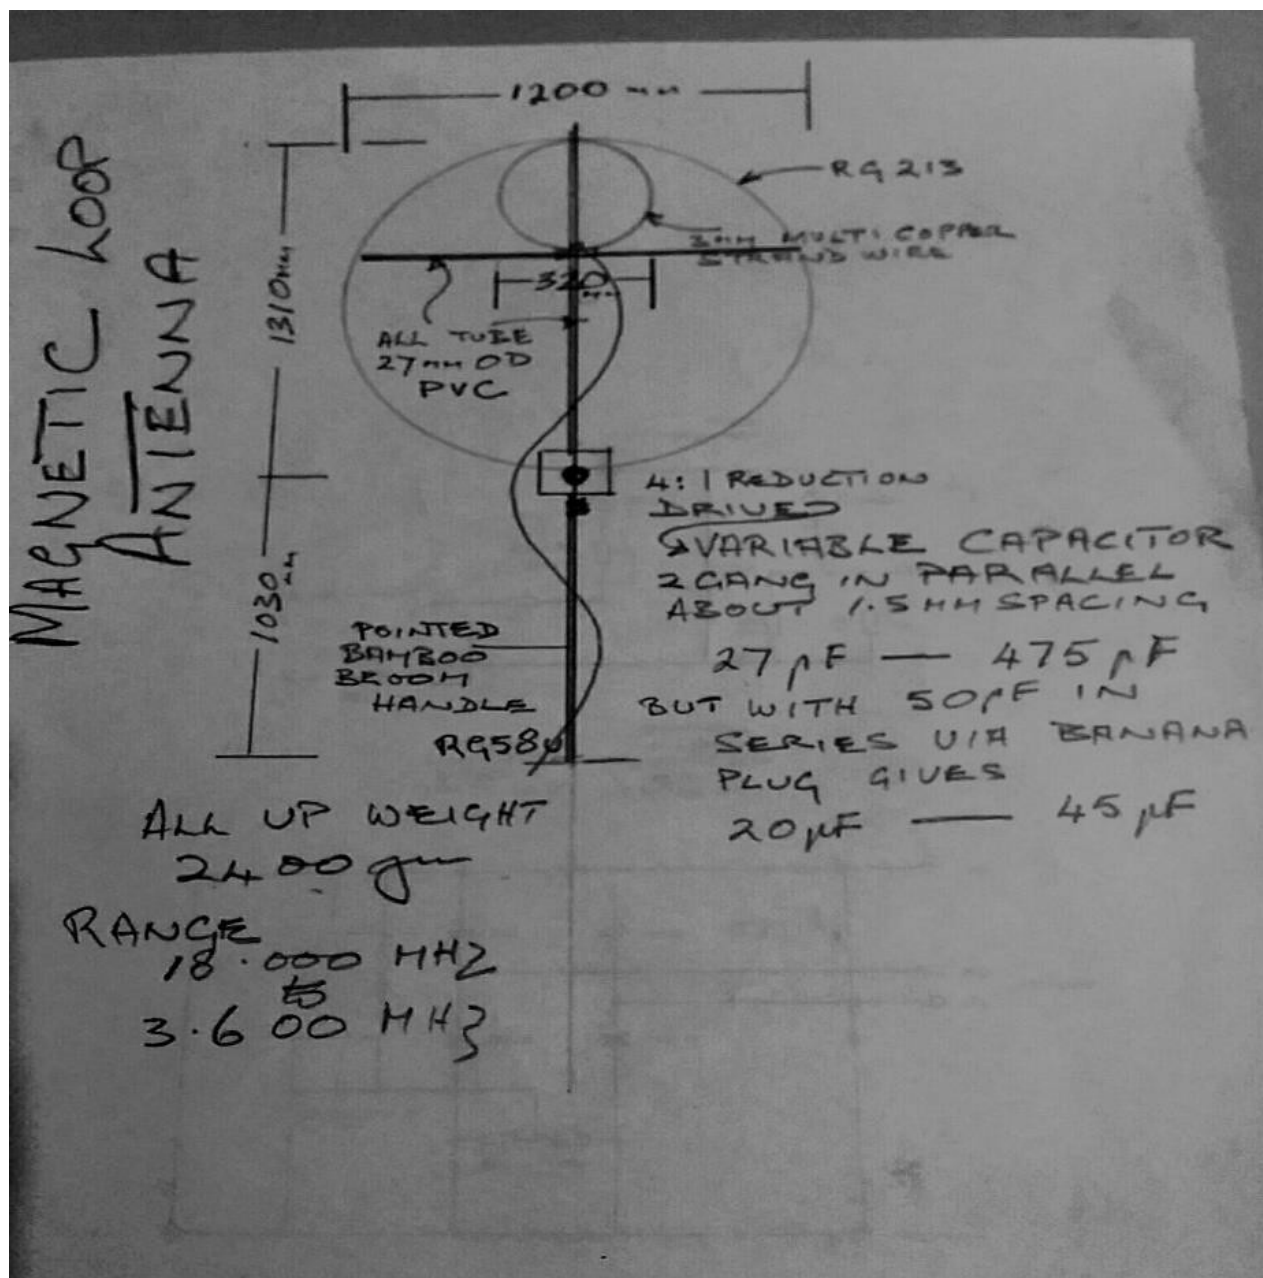 MAGNETIC LOOP
ANTENNA
1200 mm
1310mm
1030mm
RG 213
3MM MULTI COPPER
STRAND WIRE
320mm
ALL TUBE
27mm OD
PVC
4:1 REDUCTION
DRIVED
VARIABLE CAPACITOR
2 GANG IN PARALLEL
ABOUT 1.5MM SPACING
27pF — 475pF
BUT WITH 50pF IN
SERIES VIA BANANA
PLUG GIVES
20pF — 45pF
POINTED
BAMBOO
BROOM
HANDLE
RG58u
ALL UP WEIGHT
2400 gm
RANGE
18.000 MHZ
to
3.600 MHZ